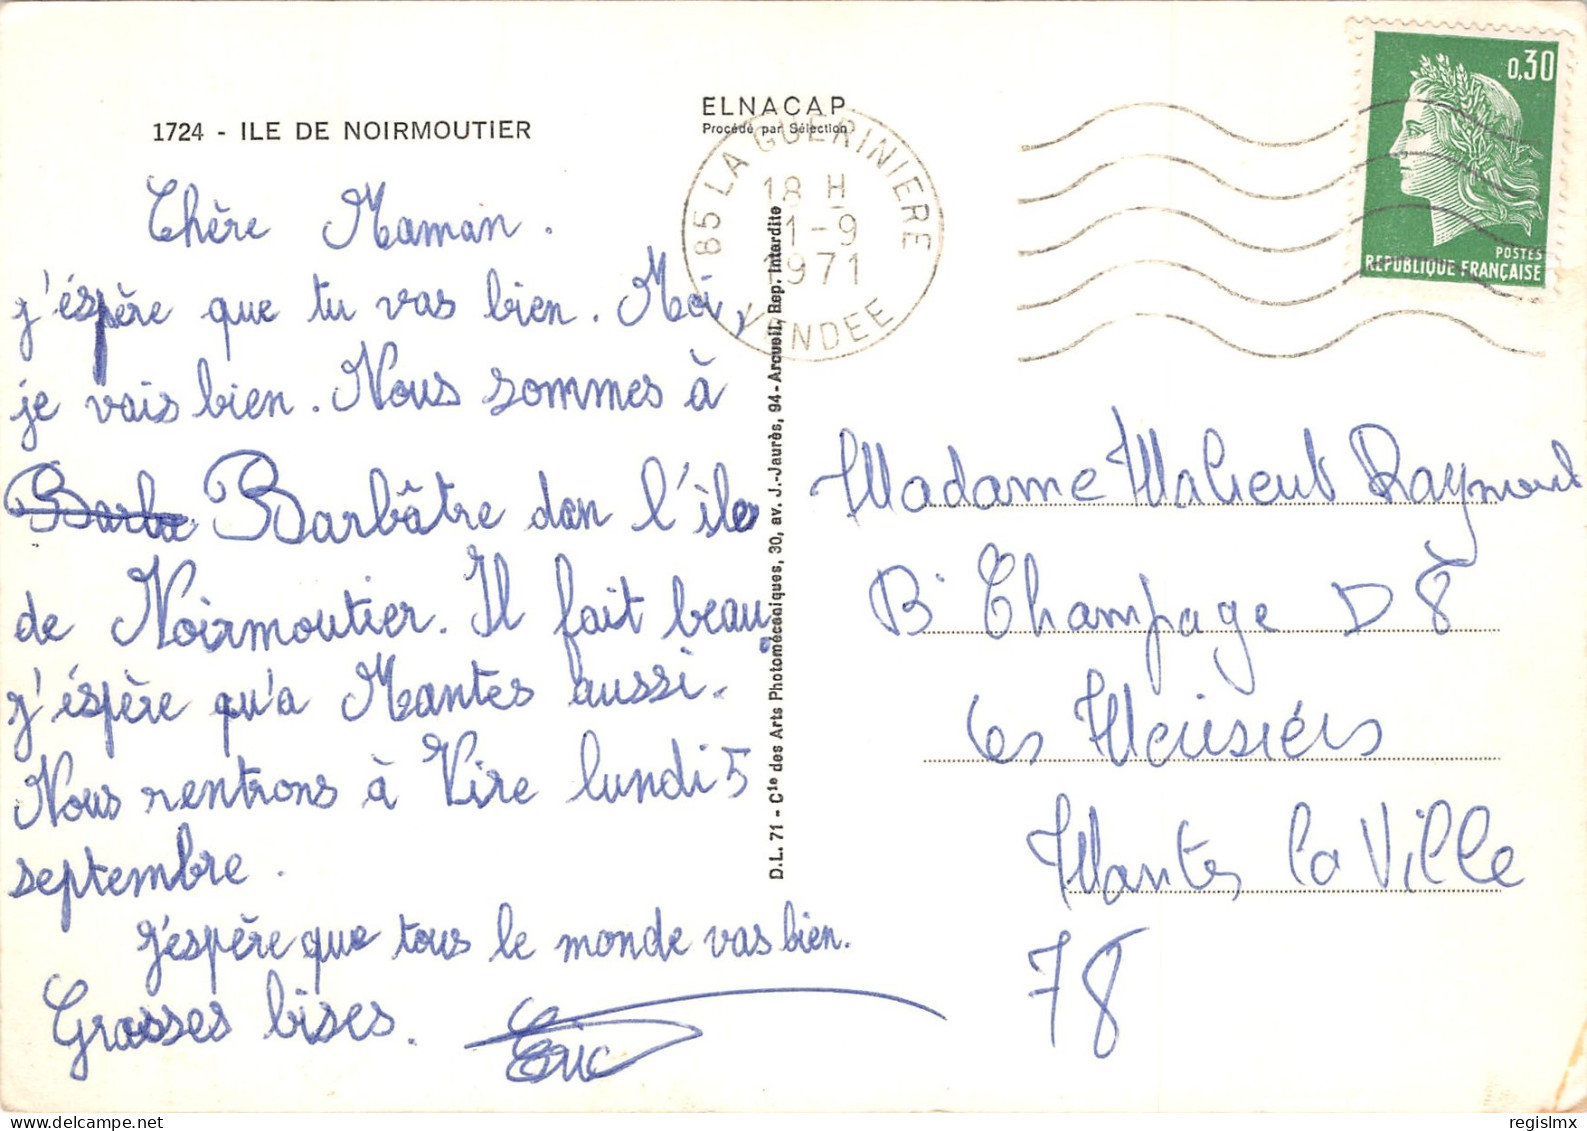 1724 - ILE DE NOIRMOUTIER
ELNACAP
Procédé par Sélection
85 LA GUERINIERE
18 H
1-9
1971
VENDEE
0,30
POSTES
REPUBLIQUE FRANÇAISE
Chère Maman.
j'éspère que tu vas bien. Moi,
je vais bien. Nous sommes à
Barba Barbâtre dan l'île
de Noirmoutier. Il fait beau,
j'éspère qu'a Mantes aussi.
Nous rentrons à Vire lundi 5
septembre.
j'espère que tous le monde vas bien.
Grosses bises.
Eric
D.L. 71 - Cie des Arts Photomécaniques, 30, av. J.-Jaurès, 94 - Arcueil, Rep. Interdite
Madame Raymond
Bt Champage D8
Les
Mantes la Ville
78
regislmx